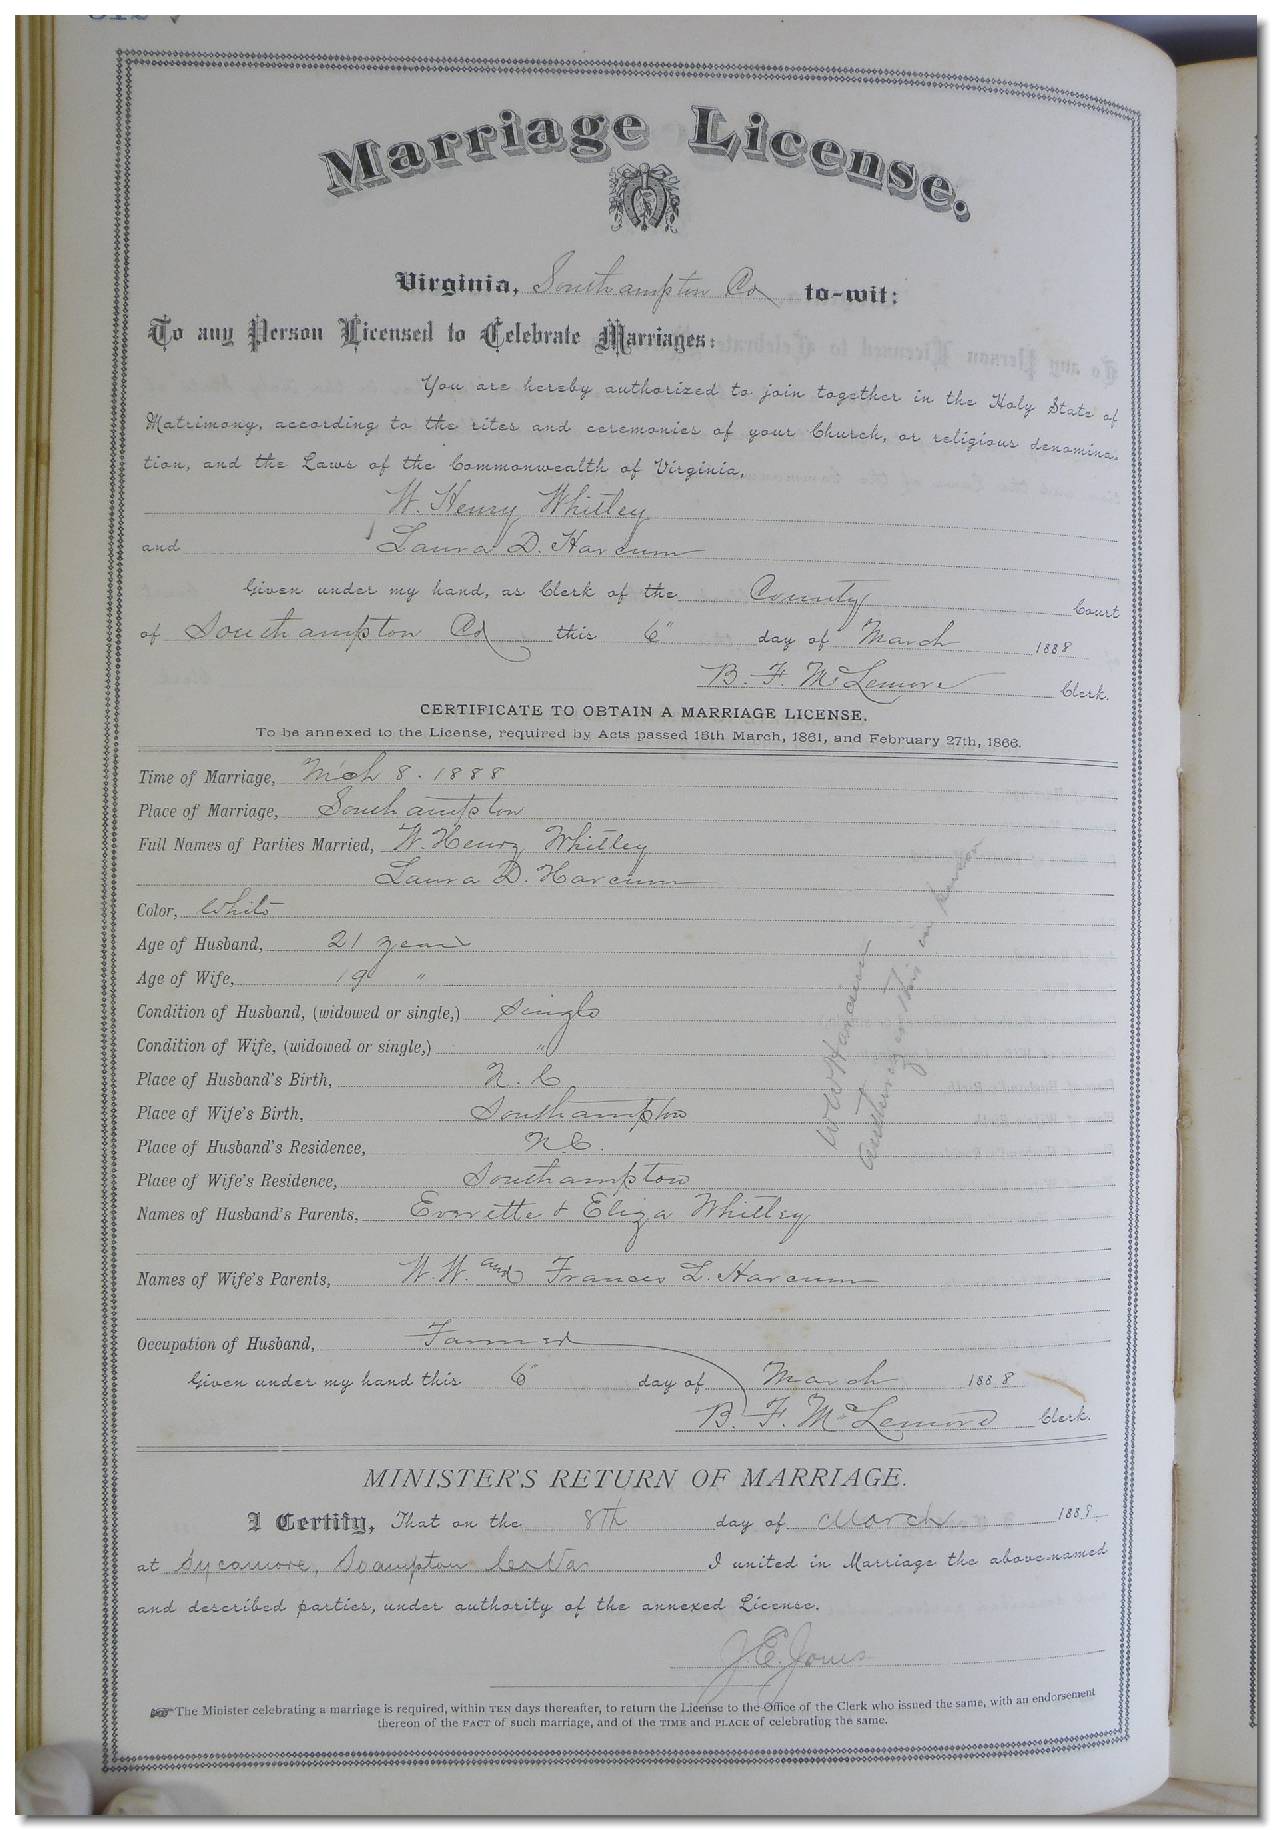 Marriage License.
Virginia, Southampton Co to-wit:
To any Person Licensed to Celebrate Marriages:
You are hereby authorized to join together in the Holy State of
Matrimony, according to the rites and ceremonies of your Church, or religious denomina-
tion, and the Laws of the Commonwealth of Virginia,
W. Henry Whitley
and Laura D. Harcum
Given under my hand, as Clerk of the County Court
of Southampton Co this 6" day of March 1888
B. F. McLemore Clerk.
CERTIFICATE TO OBTAIN A MARRIAGE LICENSE.
To be annexed to the License, required by Acts passed 15th March, 1861, and February 27th, 1866.
Time of Marriage, Mch 8. 1888
Place of Marriage, Southampton
Full Names of Parties Married, W. Henry Whitley
Laura D. Harcum
Color, White
Age of Husband, 21 years
Age of Wife, 19 "
Condition of Husband, (widowed or single,) Single
Condition of Wife, (widowed or single,) "
Place of Husband's Birth, N. C
Place of Wife's Birth, Southampton
Place of Husband's Residence, N.C.
Place of Wife's Residence, Southampton
Names of Husband's Parents, Everette & Eliza Whitley
Names of Wife's Parents, W. W. and Frances L. Harcum
Occupation of Husband, Farmer
W W Harcum
authorizes this in person
Given under my hand this 6" day of March 1888
B. F. McLemore Clerk.
MINISTER'S RETURN OF MARRIAGE.
I Certify, That on the 8th day of March 1888
at Sycamore, Soampton Co Va I united in Marriage the above-named
and described parties, under authority of the annexed License.
J. E. Jones
The Minister celebrating a marriage is required, within TEN days thereafter, to return the License to the Office of the Clerk who issued the same, with an endorsement
thereon of the FACT of such marriage, and of the TIME and PLACE of celebrating the same.